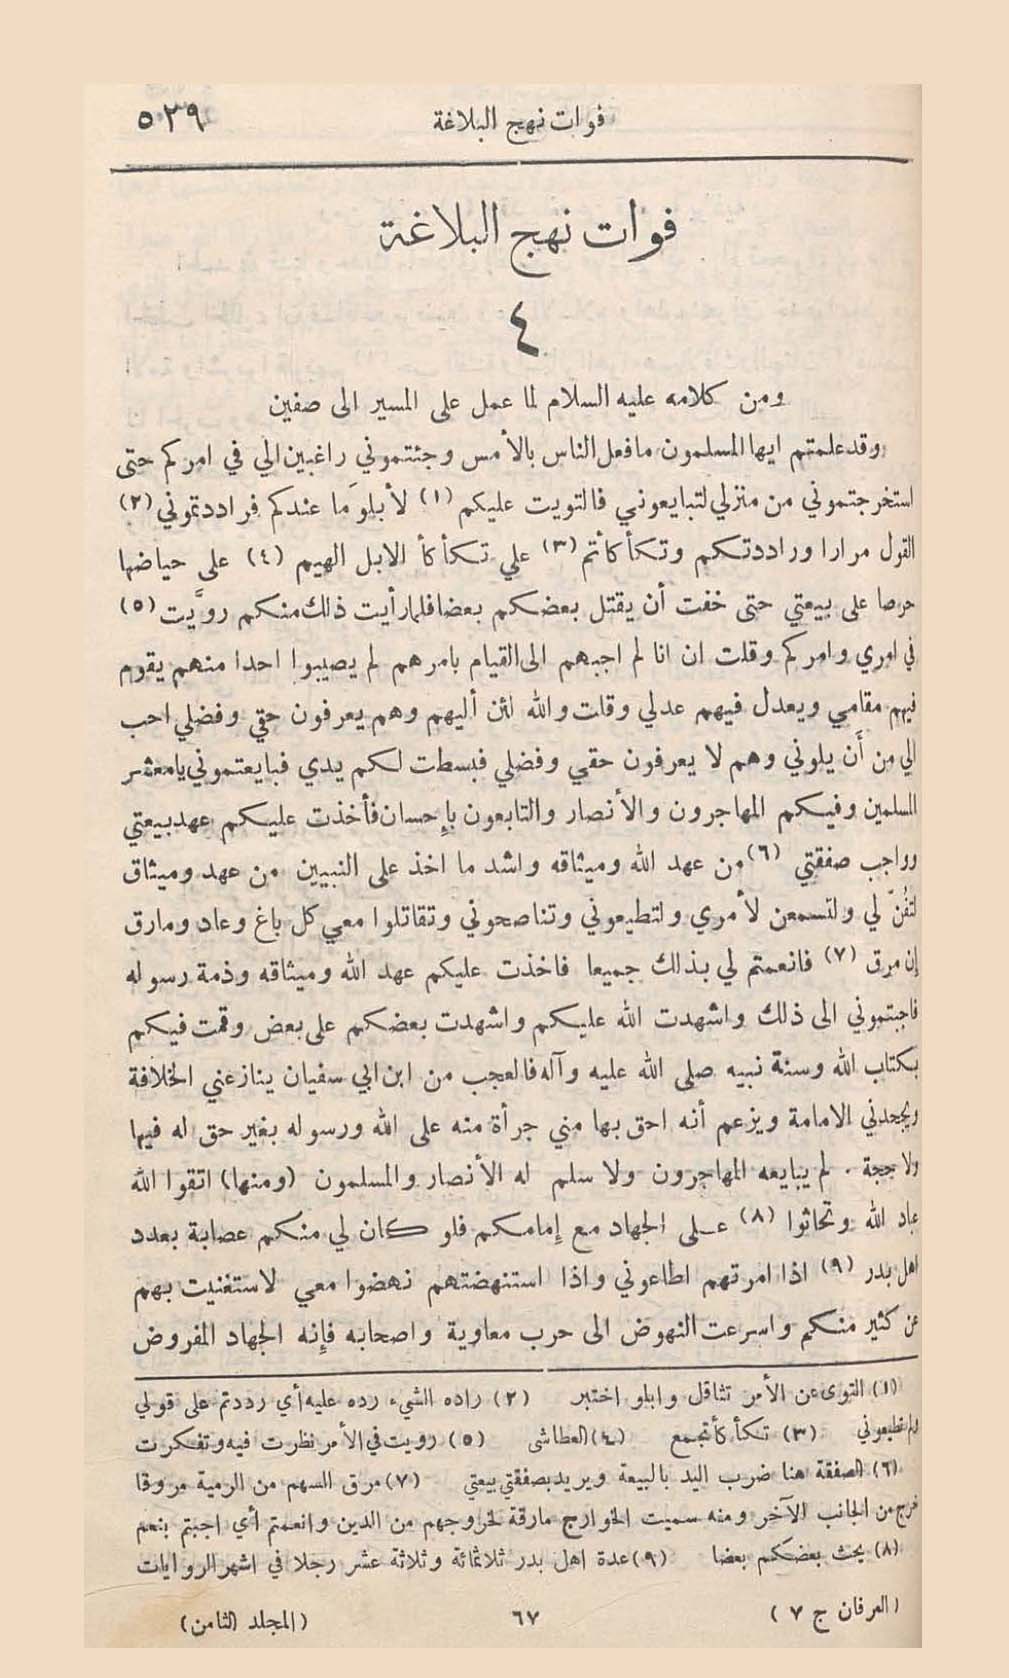 فوات نهج البلاغة ٥٢٩
فوات نهج البلاغة
٤
ومن كلامه عليه السلام لما عمل على المسير الى صفين
وقد علمتم ايها المسلمون ما فعل الناس بالأمس وجئتموني راغبين الي في امركم حتى
استخرجتموني من منزلي لتبايعوني فالتويت عليكم (١) لأبلوَ ما عندكم فراددتموني (٢)
القول مرارا وراددتكم وتكأكأتم (٣) علي تكأكأ الابل الهيم (٤) على حياضها
حرصا على بيعتي حتى خفت أن يقتل بعضكم بعضا فلما رأيت ذلك منكم روَّيت (٥)
في امري وامركم وقلت ان انا لم اجبهم الى القيام بامرهم لم يصيبوا احدا منهم يقوم
فيهم مقامي ويعدل فيهم عدلي وقلت والله لئن أليهم وهم يعرفون حقي وفضلي احب
الي من أن يلوني وهم لا يعرفون حقي وفضلي فبسطت لكم يدي فبايعتموني يا معشر
المسلمين وفيكم المهاجرون والأنصار والتابعون بإحسان فأخذت عليكم عهد بيعتي
وواجب صفقتي (٦) من عهد الله وميثاقه واشد ما اخذ على النبيين من عهد وميثاق
لتفُنّ لي ولتسمعن لأمري ولتطيعوني وتناصحوني وتقاتلوا معي كل باغ وعاد ومارق
إن مرق (٧) فانعمتم لي بذلك جميعا فاخذت عليكم عهد الله وميثاقه وذمة رسوله
فاجبتموني الى ذلك واشهدت الله عليكم واشهدت بعضكم على بعض وقمت فيكم
بكتاب الله وسنة نبيه صلى الله عليه وآله فالعجب من ابن ابي سفيان ينازعني الخلافة
ويجحدني الامامة ويزعم أنه احق بها مني جرأة منه على الله ورسوله بغير حق له فيها
ولا حجة . لم يبايعه المهاجرون ولا سلم له الأنصار والمسلمون (ومنها) اتقوا الله
عباد الله وتحاثوا (٨) على الجهاد مع إمامكم فلو كان لي منكم عصابة بعدد
اهل بدر (٩) اذا امرتهم اطاعوني واذا استنهضتهم نهضوا معي لاستغنيت بهم
عن كثير منكم واسرعت النهوض الى حرب معاوية واصحابه فإنه الجهاد المفروض
(١) التوى عن الأمر تثاقل وابلو اختبر (٢) راده الشيء رده عليه أي رددتم على قولي
ولم تطيعوني (٣) تكأكأ تجمع (٤) العطاشى (٥) رويت في الأمر نظرت فيه وتفكرت
(٦) الصفقة هنا ضرب اليد بالبيعة ويريد بصفقتي بيعتي (٧) مرق السهم من الرمية مروقا
خرج من الجانب الآخر ومنه سميت الخوارج مارقة لخروجهم من الدين وانعمتم أي اجبتم بنعم
(٨) يحث بعضكم بعضا (٩) عدة اهل بدر ثلاثمائة وثلاثة عشر رجلا في اشهر الروايات
(العرفان ج ٧) ٦٧ (المجلد الثامن)